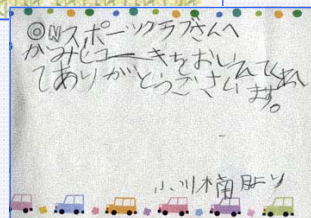 ◎Nスポーツクラブさんへ
かみヒコーキをおしえてくれ
てありがとうござい ます。
小川楠 より